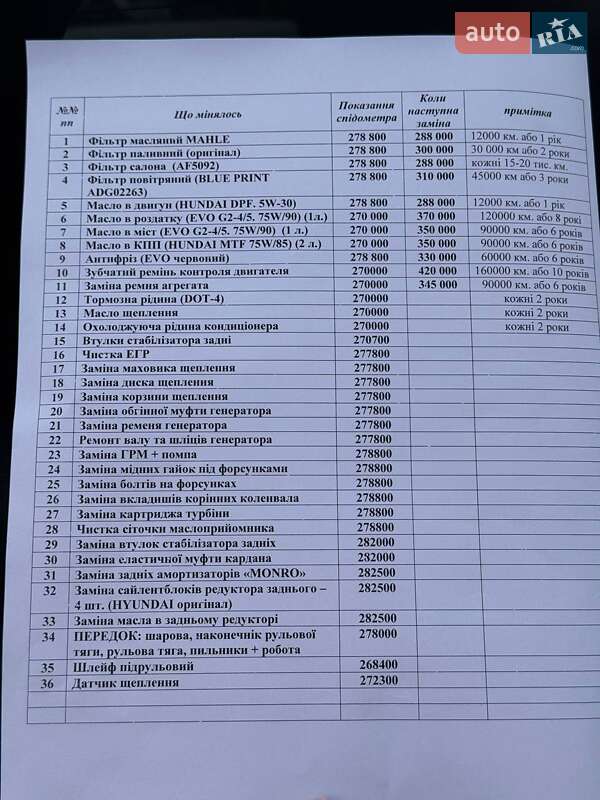 auto RIA .com
№№ пп | Що мінялось | Показання спідометра | Коли наступна заміна | примітка
1 | Фільтр масляний MAHLE | 278 800 | 288 000 | 12000 км. або 1 рік
2 | Фільтр паливний (оригінал) | 278 800 | 300 000 | 30 000 км або 2 роки
3 | Фільтр салона (AF5092) | 278 800 | 288 000 | кожні 15-20 тис. км.
4 | Фільтр повітряний (BLUE PRINT ADG02263) | 278 800 | 310 000 | 45000 км або 3 роки
5 | Масло в двигун (HUNDAI DPF. 5W-30) | 278 800 | 288 000 | 12000 км. або 1 рік
6 | Масло в роздатку (EVO G2-4/5. 75W/90) (1л.) | 270 000 | 370 000 | 120000 км. або 8 рокі
7 | Масло в міст (EVO G2-4/5. 75W/90) (1 л.) | 270 000 | 350 000 | 90000 км. або 6 років
8 | Масло в КПП (HUNDAI MTF 75W/85) (2 л.) | 270 000 | 350 000 | 90000 км. або 6 років
9 | Антифріз (EVO червоний) | 278 800 | 330 000 | 60000 км. або 6 років
10 | Зубчатий ремінь контроля двигателя | 270000 | 420 000 | 160000 км. або 10 років
11 | Заміна ремня агрегата | 270000 | 345 000 | 90000 км. або 6 років
12 | Тормозна рідина (DOT-4) | 270000 | кожні 2 роки
13 | Масло щеплення | 270000 | кожні 2 роки
14 | Охолоджуюча рідина кондиціонера | 270000 | кожні 2 роки
15 | Втулки стабілізатора задні | 270700
16 | Чистка ЕГР | 277800
17 | Заміна маховика щеплення | 277800
18 | Заміна диска щеплення | 277800
19 | Заміна корзини щеплення | 277800
20 | Заміна обгінної муфти генератора | 277800
21 | Заміна ременя генератора | 277800
22 | Ремонт валу та шліців генератора | 277800
23 | Заміна ГРМ + помпа | 278800
24 | Заміна мідних гайок під форсунками | 278800
25 | Заміна болтів на форсунках | 278800
26 | Заміна вкладишів корінних коленвала | 278800
27 | Заміна картриджа турбіни | 278800
28 | Чистка сіточки маслоприйомника | 278800
29 | Заміна втулок стабілізатора задніх | 282000
30 | Заміна еластичної муфти кардана | 282000
31 | Заміна задніх амортизаторів «MONRO» | 282500
32 | Заміна сайлентблоків редуктора заднього – 4 шт. (HYUNDAI оригінал) | 282500
33 | Заміна масла в задньому редукторі | 282500
34 | ПЕРЕДОК: шарова, наконечнік рульової тяги, рульова тяга, пильники + робота | 278000
35 | Шлейф підрульовий | 268400
36 | Датчик щеплення | 272300